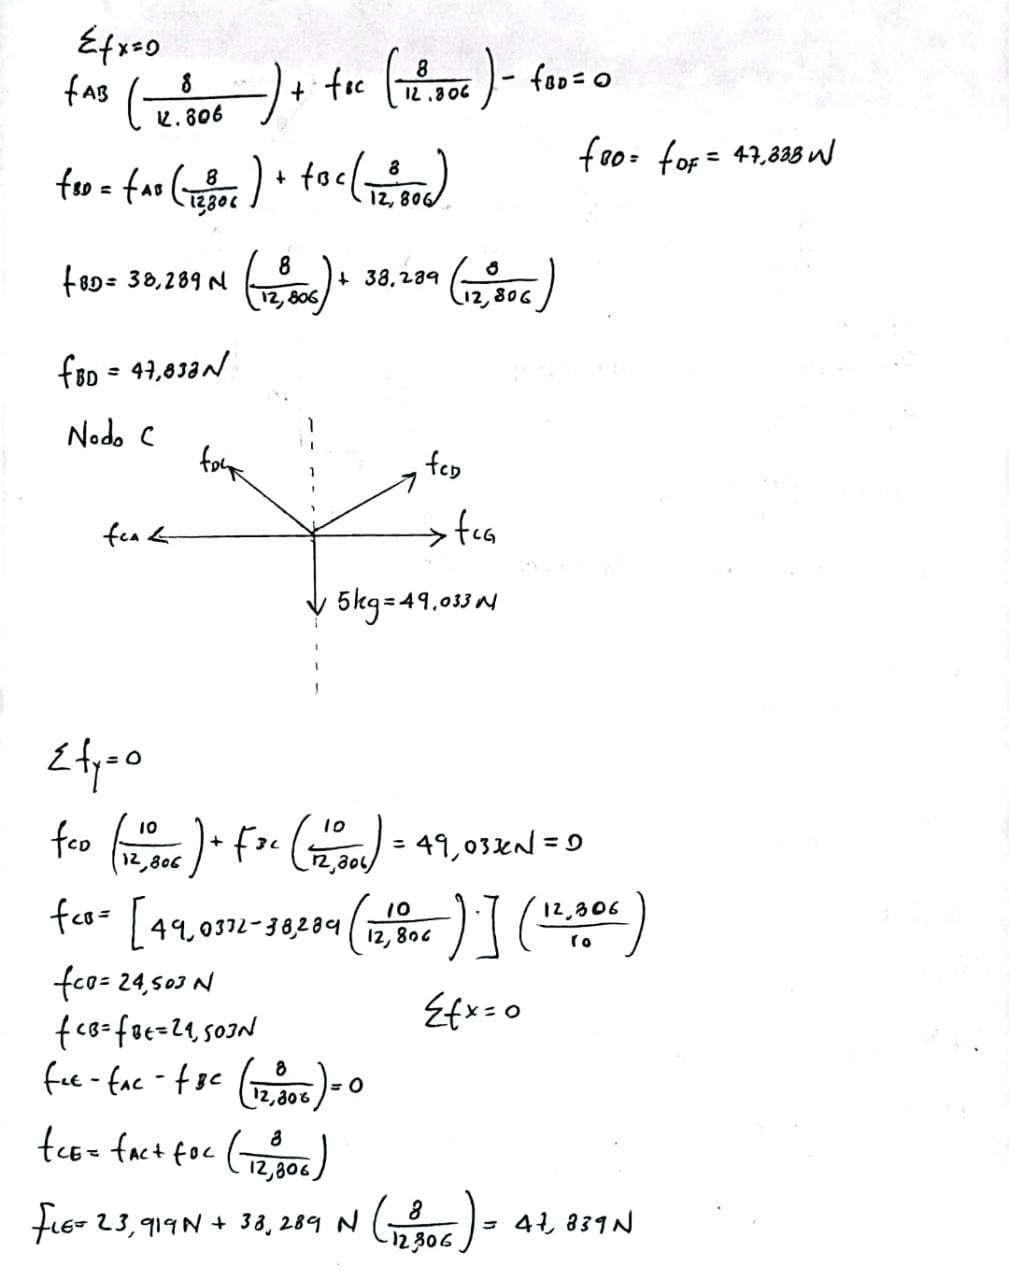 Σfx=0
fAB (8/12.806) + fBC (8/12.806) - fBD=0
fBD = fAB (8/12,806) + fBC (8/12,806)
fBD= fDF = 47,838 N
fBD= 38,289 N (8/12,806) + 38,289 (8/12,806)
fBD = 47,838 N
Nodo C
fCD
fCA
fCG
5kg=49,033 N
Σfy=0
fCD (10/12,806) + FBC (10/12,806) = 49,033 N = 0
fCD= [49,0332-38,289 (10/12,806)] (12,806/10)
fCD= 24,503 N
fCB=fBE=24,503N
Σfx=0
fCE - fAC - fBC (8/12,806)=0
fCE= fAC+ fBC (8/12,806)
fCE= 23,919N + 38,289 N (8/12,806) = 47,839 N